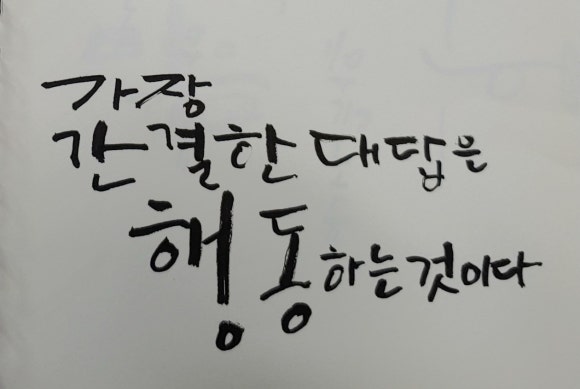 가장
간결한 대답은
행동하는것이다